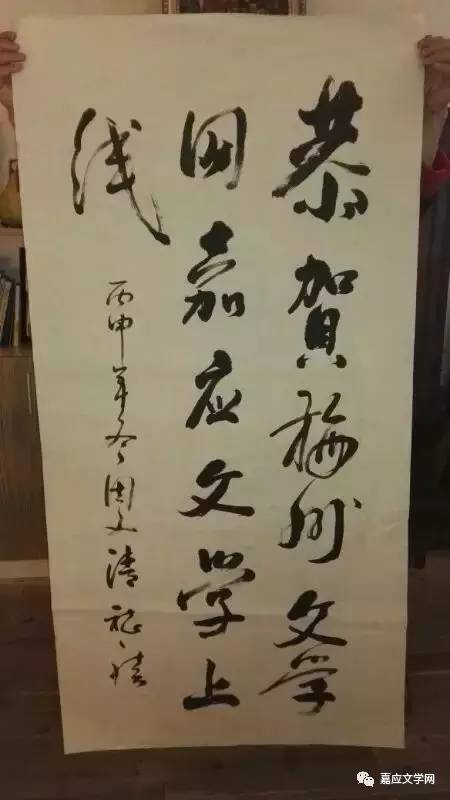 恭賀梅州文学
网嘉应文学上
线
丙申年冬周文清
嘉应文学网